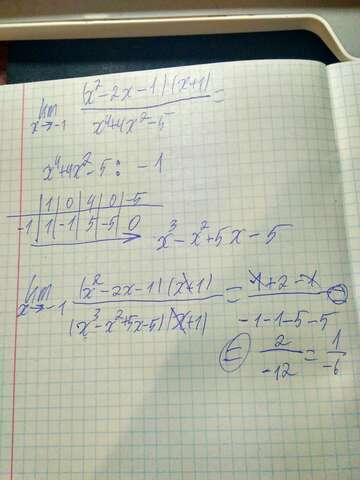 lim x→-1 (x²-2x-1)(x+1) / x⁴+4x²-5 =
x⁴+4x²-5 : -1
| 1 | 0 | 4 | 0 | -5
-1 | 1 | -1 | 5 | -5 | 0
x³-x²+5x-5
lim x→-1 (x²-2x-1)(x+1) / (x³-x²+5x-5)(x+1) = 1+2-1 / -1-1-5-5 =
= 2 / -12 = 1 / -6